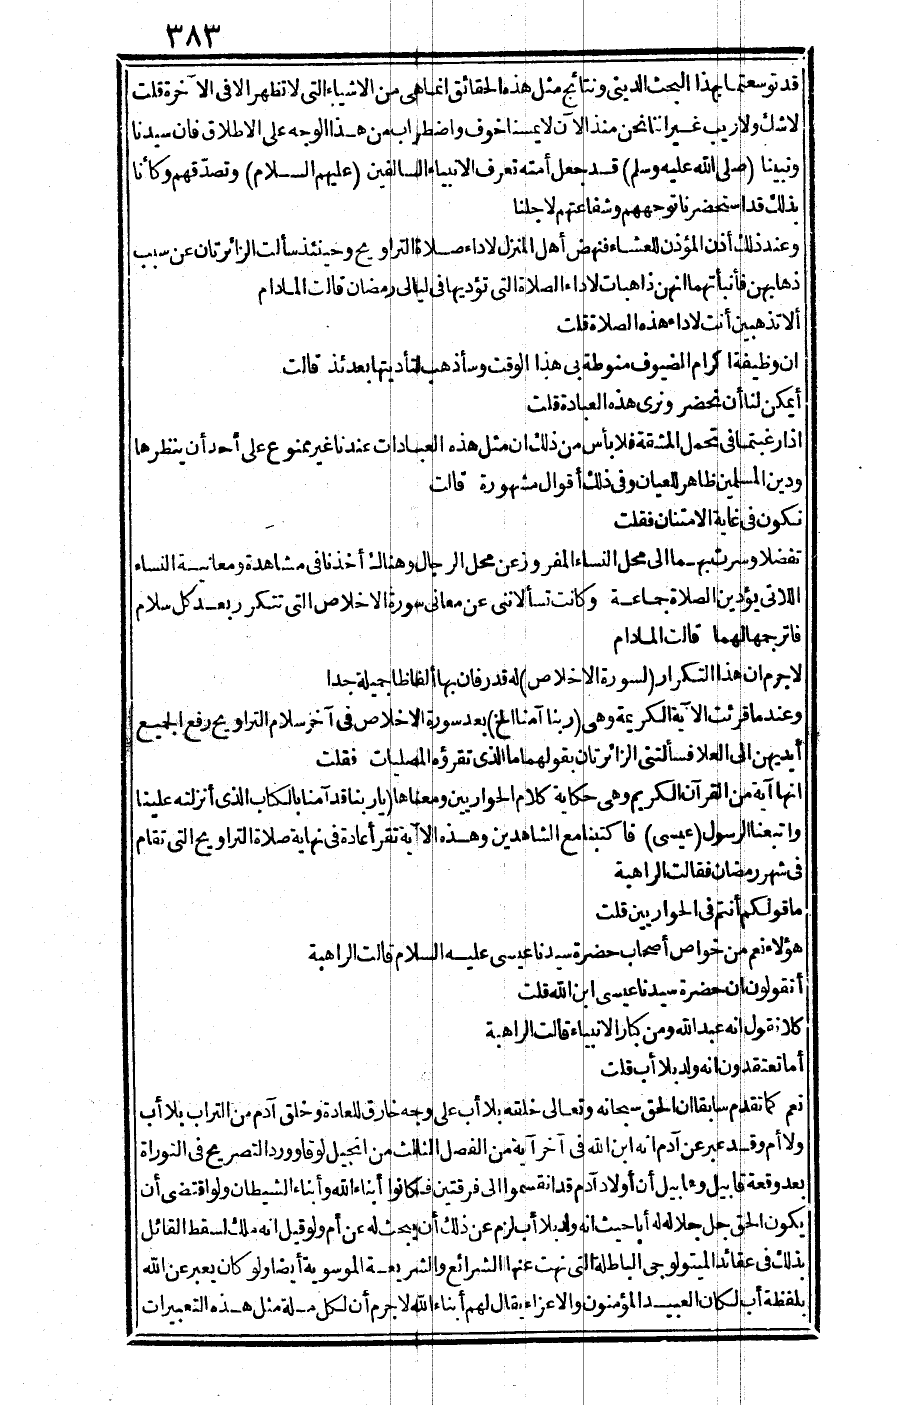 ٣٨٣
قد توسعتما بهذا البحث الديني ونتائج مثل هذه الحقائق انما هي من الاشياء التي لا تظهر الا في الآخرة قلت
لا شك ولا ريب غير اننا نحن منذ الآن لا يمسنا خوف واضطراب من هذا الوجه على الاطلاق فان سيدنا
ونبينا (صلى الله عليه وسلم) قد جعل أمته تعرف الانبياء السالفين (عليهم السلام) وتصدّقهم وكأنا
بذلك قد استحضرنا توجههم وشفاعتهم لاجلنا
وعند ذلك أذن المؤذن للعشاء فنهض أهل المنزل لاداء صلاة التراويح وحينئذ سألت الزائرتان عن سبب
ذهابهن فأنبأتهما انهن ذاهبات لاداء الصلاة التي تؤديها في ليالي رمضان قالت المادام
ألا تذهبين أنت لاداء هذه الصلاة قلت
ان وظيفة اكرام الضيوف منوطة بي هذا الوقت وسأذهب لتأديتها بعدئذ قالت
أيمكن لنا أن نحضر ونرى هذه العبادة قلت
اذا رغبتما في تحمل المشقة فلا بأس من ذلك ان مثل هذه العبادات عندنا غير ممنوع على أحد أن ينظرها
ودين المسلمين ظاهر للعيان وفي ذلك أقوال مشهورة قالت
نكون في غاية الامتنان فقلت
تفضلا وسرت بهما الى محل النساء المفروز عن محل الرجال وهناك أخذنا في مشاهدة ومعاينة النساء
اللاتي يؤدين الصلاة جماعة وكانت تسألانني عن معاني سورة الاخلاص التي تتكرر بعد كل سلام
فاترجمها لهما قالت المادام
لا جرم ان هذا التكرار (لسورة الاخلاص) له قدر فان بها ألفاظا جميلة جدا
وعند ما قرئت الآية الكريمة وهي (ربنا آمنا الخ) بعد سورة الاخلاص في آخر سلام التراويح رفع الجميع
أيديهن الى العلا فسألتني الزائرتان بقولهما ما الذي تقرؤه المصليات فقلت
انها آية من القرآن الكريم وهي حكاية كلام الحواريين ومعناها (يا ربنا قد آمنا بالكتاب الذي أنزلته علينا
واتبعنا الرسول (عيسى) فاكتبنا مع الشاهدين وهذه الآية تقرأ عادة في نهاية صلاة التراويح التي تقام
في شهر رمضان فقالت الراهبة
ما قولكم أنتم في الحواريين قلت
هؤلاء نعم من خواص أصحاب حضرة سيدنا عيسى عليه السلام قالت الراهبة
أتقولون ان حضرة سيدنا عيسى ابن الله قلت
كلا نقول انه عبد الله ومن كبار الانبياء قالت الراهبة
أما تعتقدون انه ولد بلا أب قلت
نعم كما تقدم سابقا ان الحق سبحانه وتعالى خلقه بلا أب على وجه خارق للعادة وخلق آدم من التراب بلا أب
ولا أم وقد عبر عن آدم انه ابن الله في آخر آية من الفصل الثالث من انجيل لوقا وورد التصريح في التوراة
بعد وقعة قابيل وهابيل أن أولاد آدم قد انقسموا الى فرقتين فكانوا أبناء الله وأبناء الشيطان ولو اقتضى أن
يكون الحق جل جلاله له أبا حيث انه ولد بلا أب لزم عن ذلك أن يبحث له عن أم ولو قيل انه ملك لسقط القائل
بذلك في عقائد الميتولوجي الباطلة التي نهت عنها الشرائع والشريعة الموسوية أيضا ولو كان يعبر عن الله
بلفظة أب لكان العبيد المؤمنون والاعزاء يقال لهم أبناء الله لا جرم أن لكل ملة مثل هذه التعبيرات